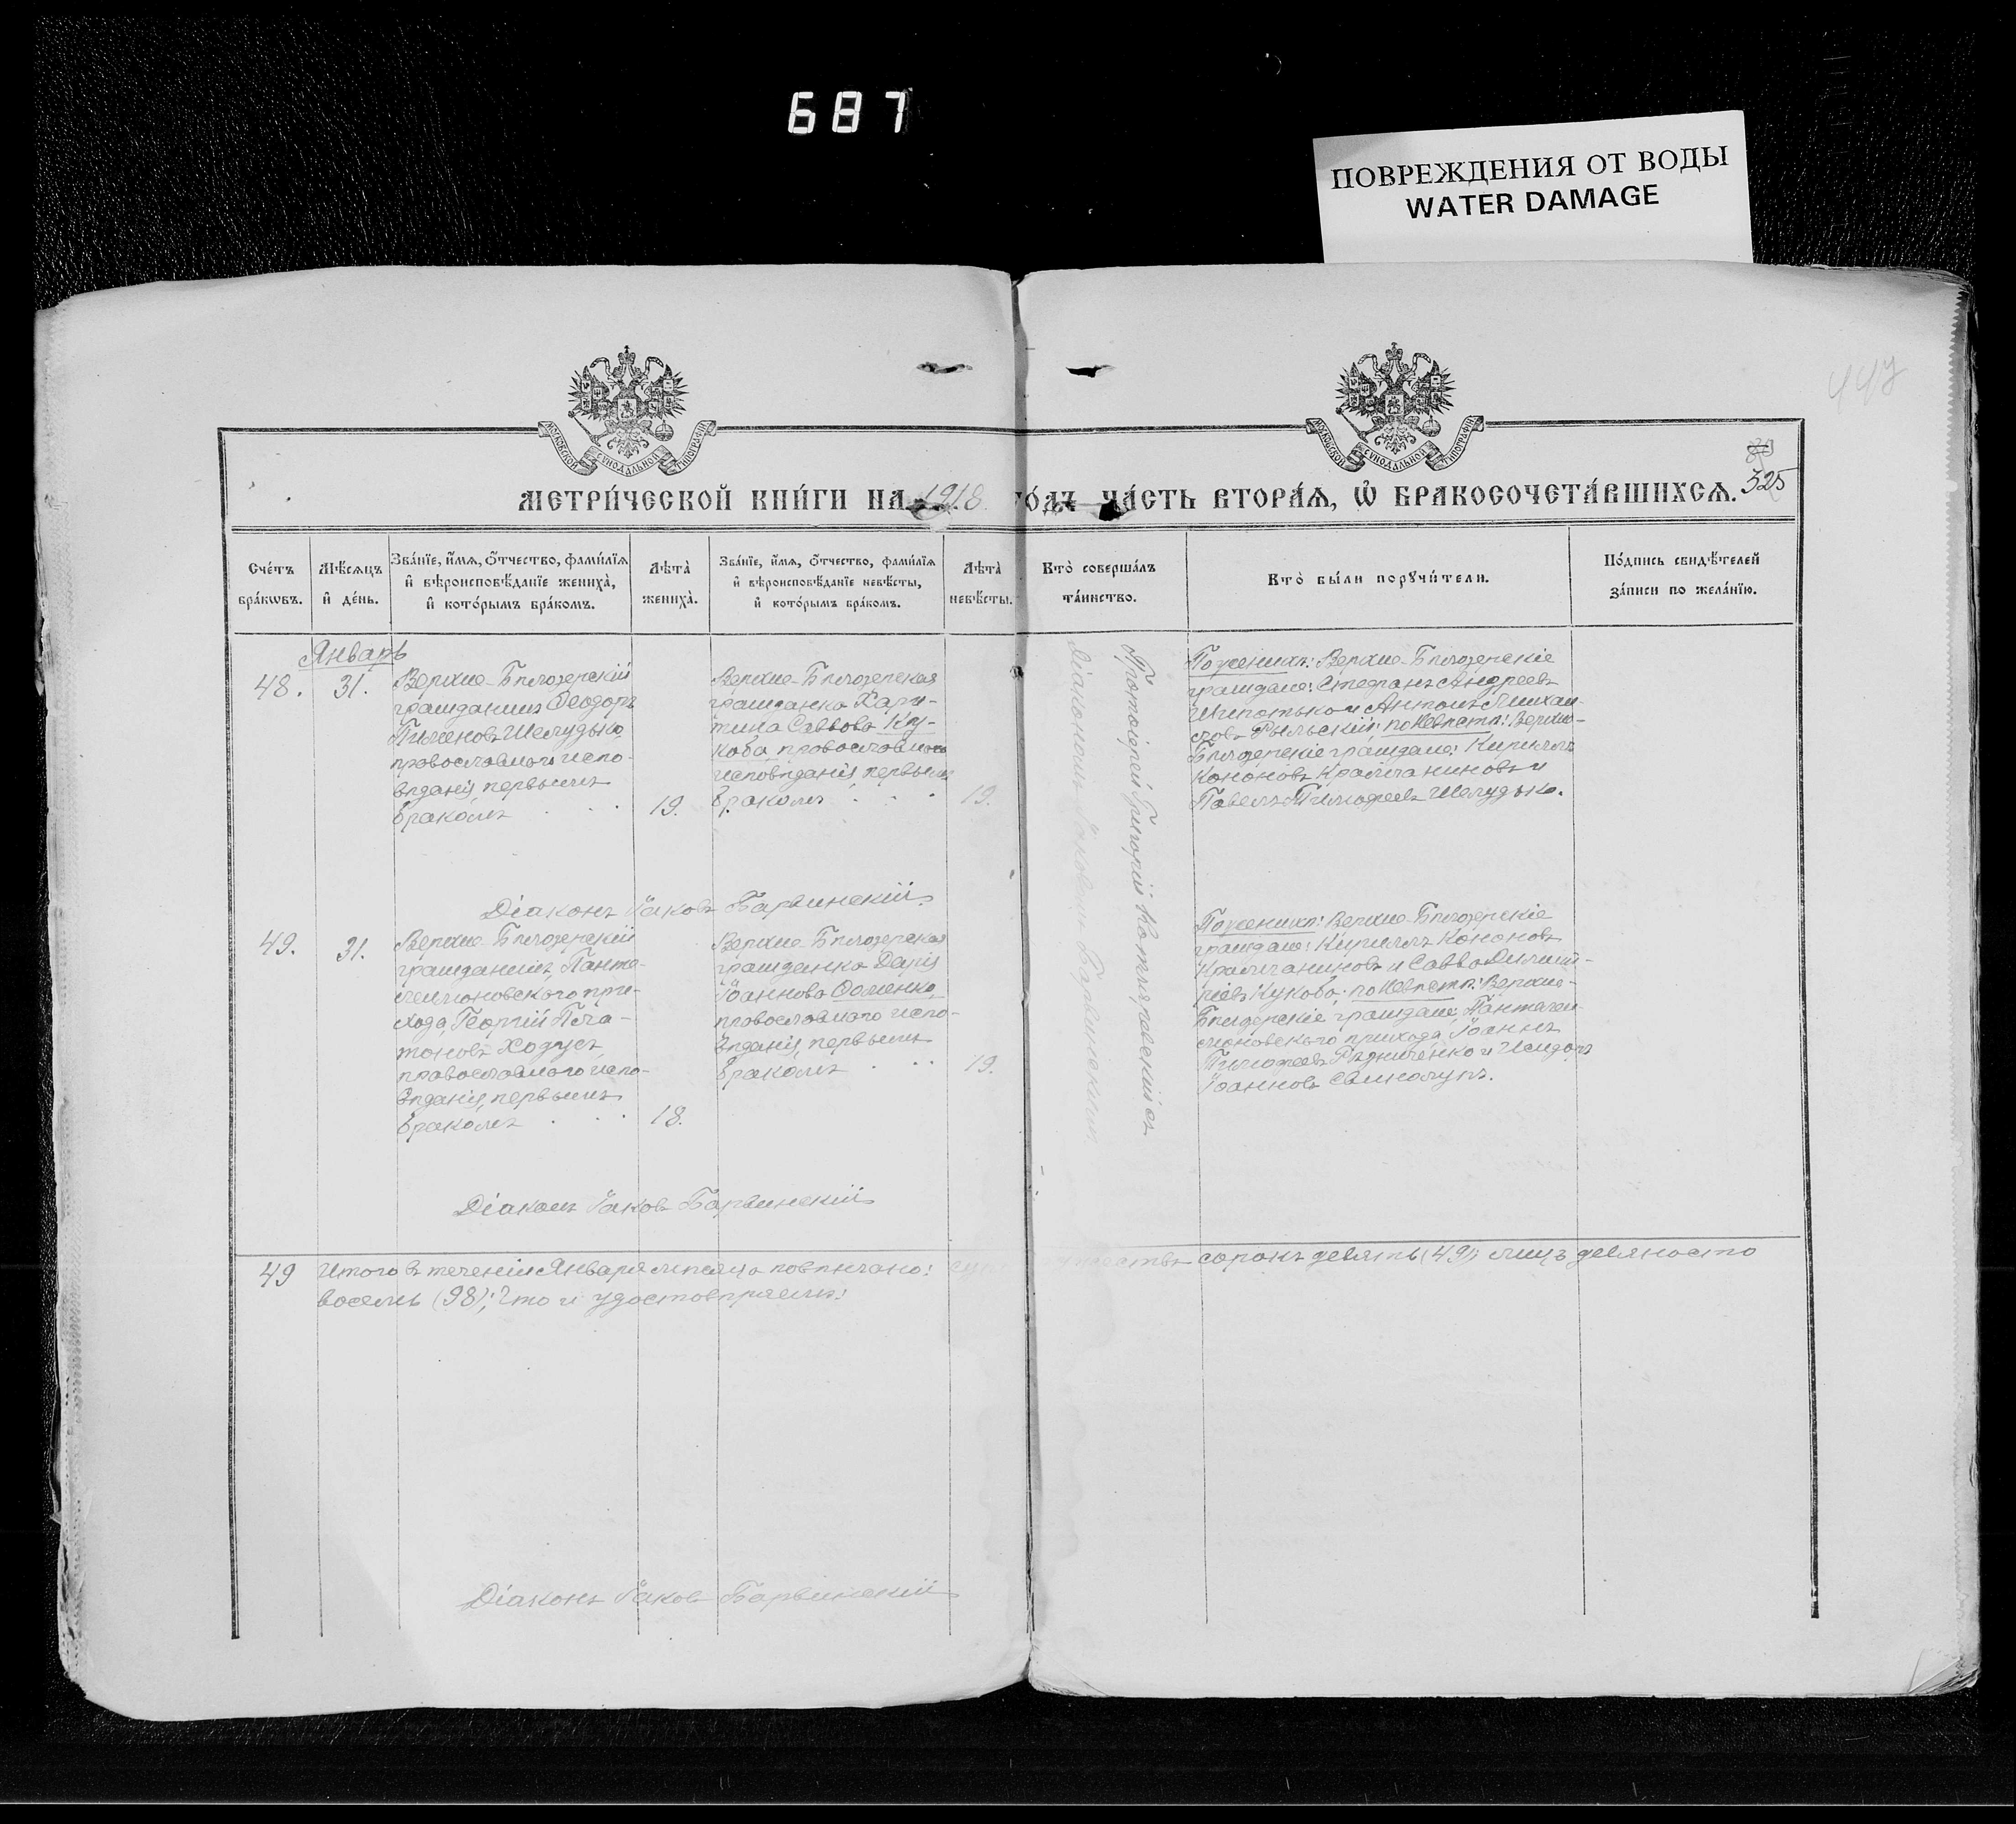 687
ПОВРЕЖДЕНИЯ ОТ ВОДЫ
WATER DAMAGE
447
525
МОСКОВСКОЙ СѴНОДАЛЬНОЙ ТИПОГРАФІИ
МОСКОВСКОЙ СѴНОДАЛЬНОЙ ТИПОГРАФІИ
МЕТРИ́ЧЕСКОЙ КНИ́ГИ НА 1918 ГО́ДЪ ЧА́СТЬ ВТОРА́Я, Ѡ҆ БРАКОСОЧЕТА́ВШИХСѦ.
Сче́тъ
бра́кѡвъ.
Мѣ́сѧцъ
и҆ де́нь.
Зва́нїе, и҆́мѧ, ѻ҆́тчество, фами́лїѧ
и҆ вѣроисповѣ́данїе жениха̀,
и҆ кото́рымъ бра́комъ.
Лѣта̀
жениха̀.
Зва́нїе, и҆́мѧ, ѻ҆́тчество, фами́лїѧ
и҆ вѣроисповѣ́данїе невѣ́сты,
и҆ кото́рымъ бра́комъ.
Лѣта̀
невѣ́сты.
Кто̀ соверша́лъ
та́инство.
Кто̀ бы́ли порꙋчи́тели.
По́дпись свидѣ́телей
за́писи по жела́нїю.
Январь
48.
31.
Верхне-Бѣлозерскій
гражданинъ Ѳеодоръ
Пименовъ Шелудько,
православнаго испо-
вѣданія, первымъ
бракомъ . . .
19.
Верхне-Бѣлозерская
гражданка Хари-
тина Саввова Ку-
коба, православнаго
исповѣданія, первымъ
бракомъ . . .
19.
Протоіерей Григорій Котляревскій съ
діакономъ Іаковомъ Барвинскимъ
По женихѣ: Верхне-Бѣлозерскіе
граждане: Стефанъ Андреевъ
Шпотько и Антонъ Михаи-
ловъ Рыльскій; по невѣстѣ: Верхне-
Бѣлозерскіе граждане: Кириллъ
Кононовъ Крамчаниновъ и
Павелъ Тимоѳеевъ Шелудько.
Діаконъ Іаковъ Барвинскій.
49.
31.
Верхне-Бѣлозерскій
гражданинъ, Панте-
леимоновскаго при-
хода, Георгій Пла-
тоновъ Ходусъ,
православнаго испо-
вѣданія, первымъ
бракомъ . . .
18.
Верхне-Бѣлозерская
гражданка Дарія
Іоаннова Фоменко,
православнаго испо-
вѣданія, первымъ
бракомъ . . .
19.
По женихѣ: Верхне-Бѣлозерскіе
граждане: Кириллъ Кононовъ
Крамчаниновъ и Савва Димит-
ріевъ Кукоба; по невѣстѣ: Верхне-
Бѣлозерскіе граждане, Пантелеи-
моновскаго прихода, Іоаннъ
Тимоѳеевъ Рѣдниченко и Исидоръ
Іоанновъ Свинолупъ.
Діаконъ Іаковъ Барвинскій
49 Итого въ теченіи Января мѣсяца повѣнчано: сорокъ девять (49), лицъ девяносто
восемь (98); что и удостовѣряемъ:
Діаконъ Іаковъ Барвинскій